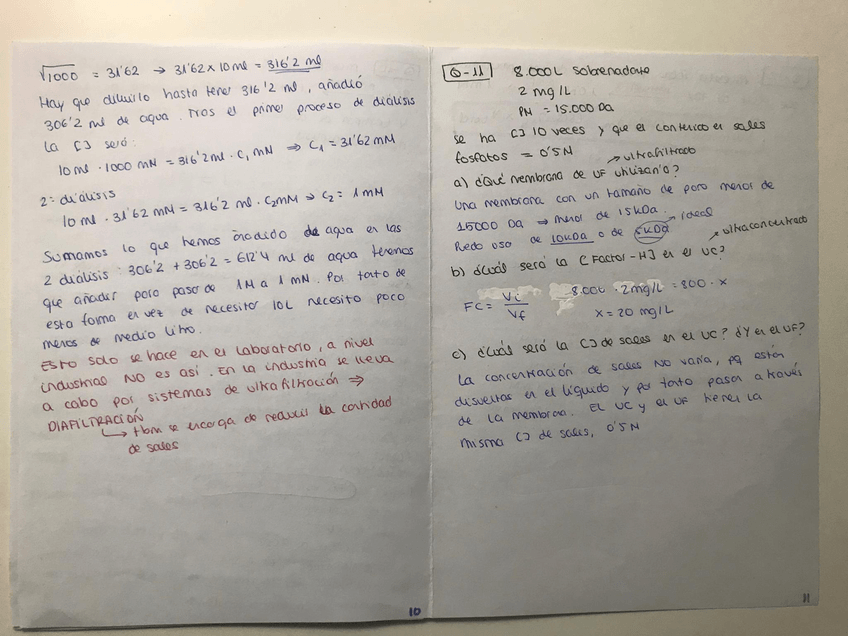 √1000 = 31'62 → 31'62 x 10 ml = 316'2 ml
Hay que diluirlo hasta tener 316'2 ml, añadió
306'2 ml de agua. Tras el primer proceso de diálisis
la [] será:
10 ml · 1000 mM = 316'2 ml · C₁ mM ⇒ C₁ = 31'62 mM
2ª diálisis
10 ml · 31'62 mM = 316'2 ml · C₂ mM ⇒ C₂ = 1 mM
Sumamos lo que hemos añadido de agua en las
2 diálisis: 306'2 + 306'2 = 612'4 ml de agua tenemos
que añadir para pasar de 1M a 1 mM. Por tanto de
esta forma en vez de necesitar 10L necesito poco
menos de medio litro.
Esto solo se hace en el laboratorio, a nivel
industrial NO es así. En la industria se lleva
a cabo por sistemas de ultrafiltración ⇒
DIAFILTRACIÓN
↳ Hbm se encarga de reducir la cantidad
de sales
10
Q-11 8.000L sobrenadante
2 mg/L
PM = 15.000 Da
se ha [] 10 veces y que el contenido en sales
fosfatos = 0'5N
→ ultrafiltrado
a) ¿Qué membrana de UF utilizaría?
Una membrana con un tamaño de poro menor de
15000 Da ⇒ menor de 15 kDa. → ideal
Puedo usar de 10kDa o de 5kDa
→ ultraconcentrado
b) ¿Cuál será la [Factor-H] en el UC?
FC = Vi / Vf 8.000 · 2 mg/L = 800 · x
x = 20 mg/L
c) ¿Cuál será la [] de sales en el UC? ¿Y en el UF?
La concentración de sales no varía, pq están
disueltas en el líquido y por tanto pasan a través
de la membrana. El UC y el UF tienen la
misma [] de sales, 0'5N
11